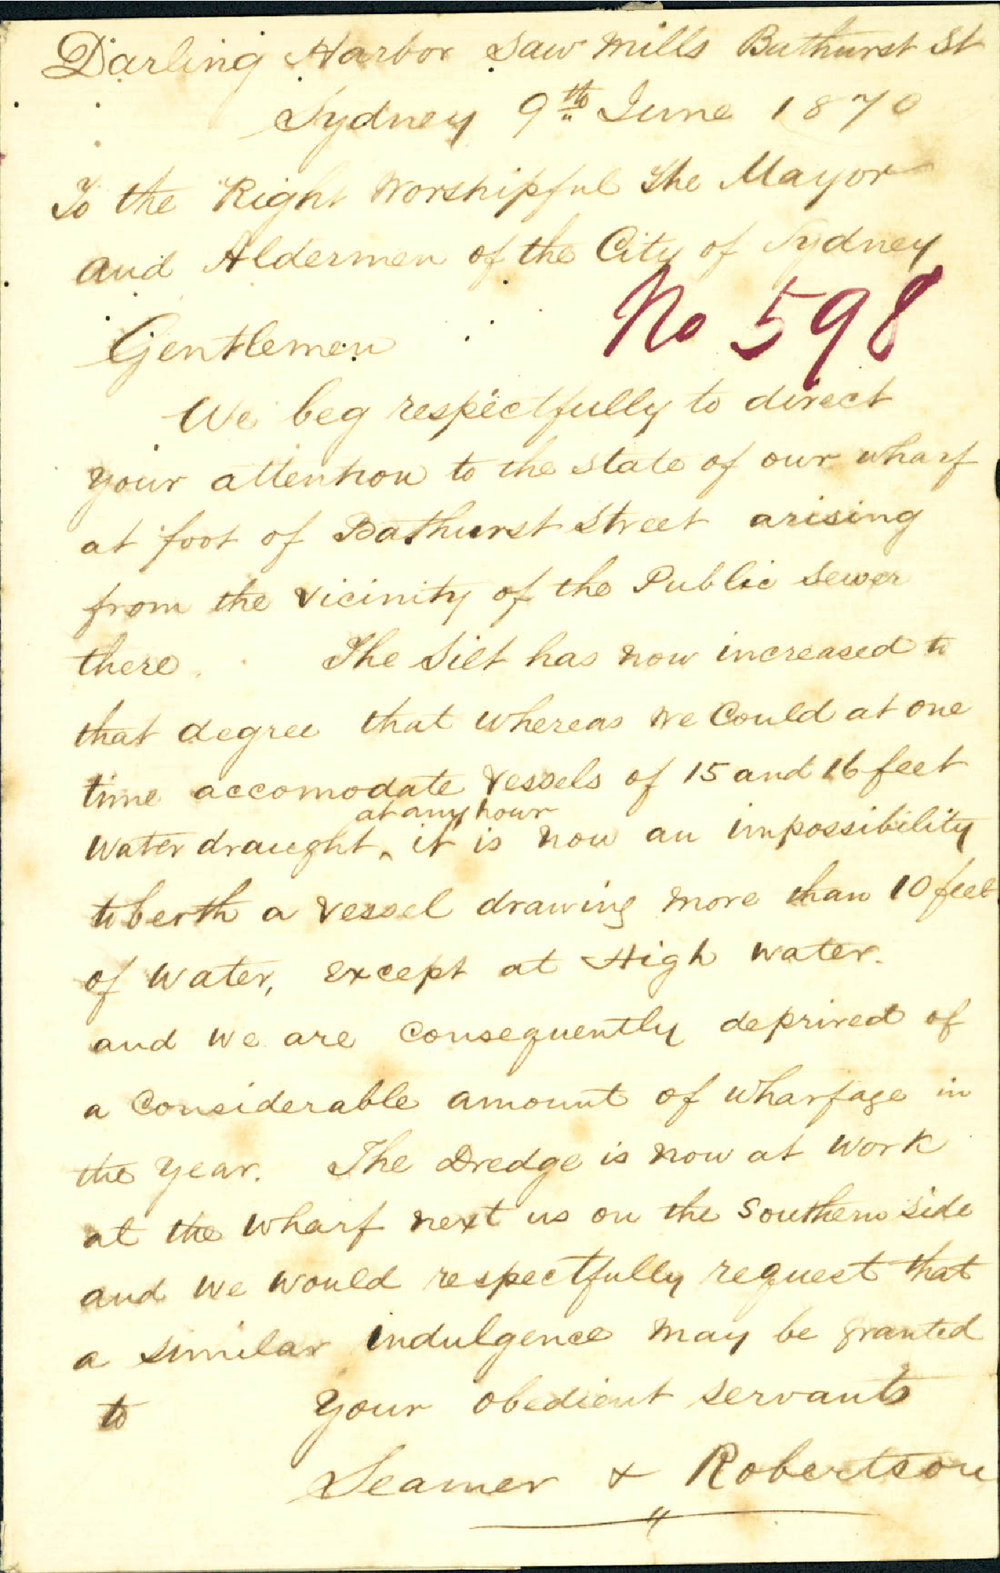 Darling Harbor Saw Mills Bathurst St
Sydney 9th June 1870
To the Right Worshipful The Mayor
and Aldermen of the City of Sydney
No 598
Gentlemen
We beg respectfully to direct
your attention to the state of our wharf
at foot of Bathurst Street arising
from the vicinity of the Public Sewer
there. The Silt has now increased to
that degree that whereas we Could at one
time accomodate vessels of 15 and 16 feet
at any hour
water draught ‸ it is now an impossibility
to berth a vessel drawing more than 10 feet
of water, except at High water.
and we are Consequently deprived of
a Considerable amount of wharfage in
the year. The Dredge is now at work
at the wharf next us on the Southern Side
and we would respectfully request that
a similar indulgence may be granted
to Your obedient servants
Seamer & Robertson